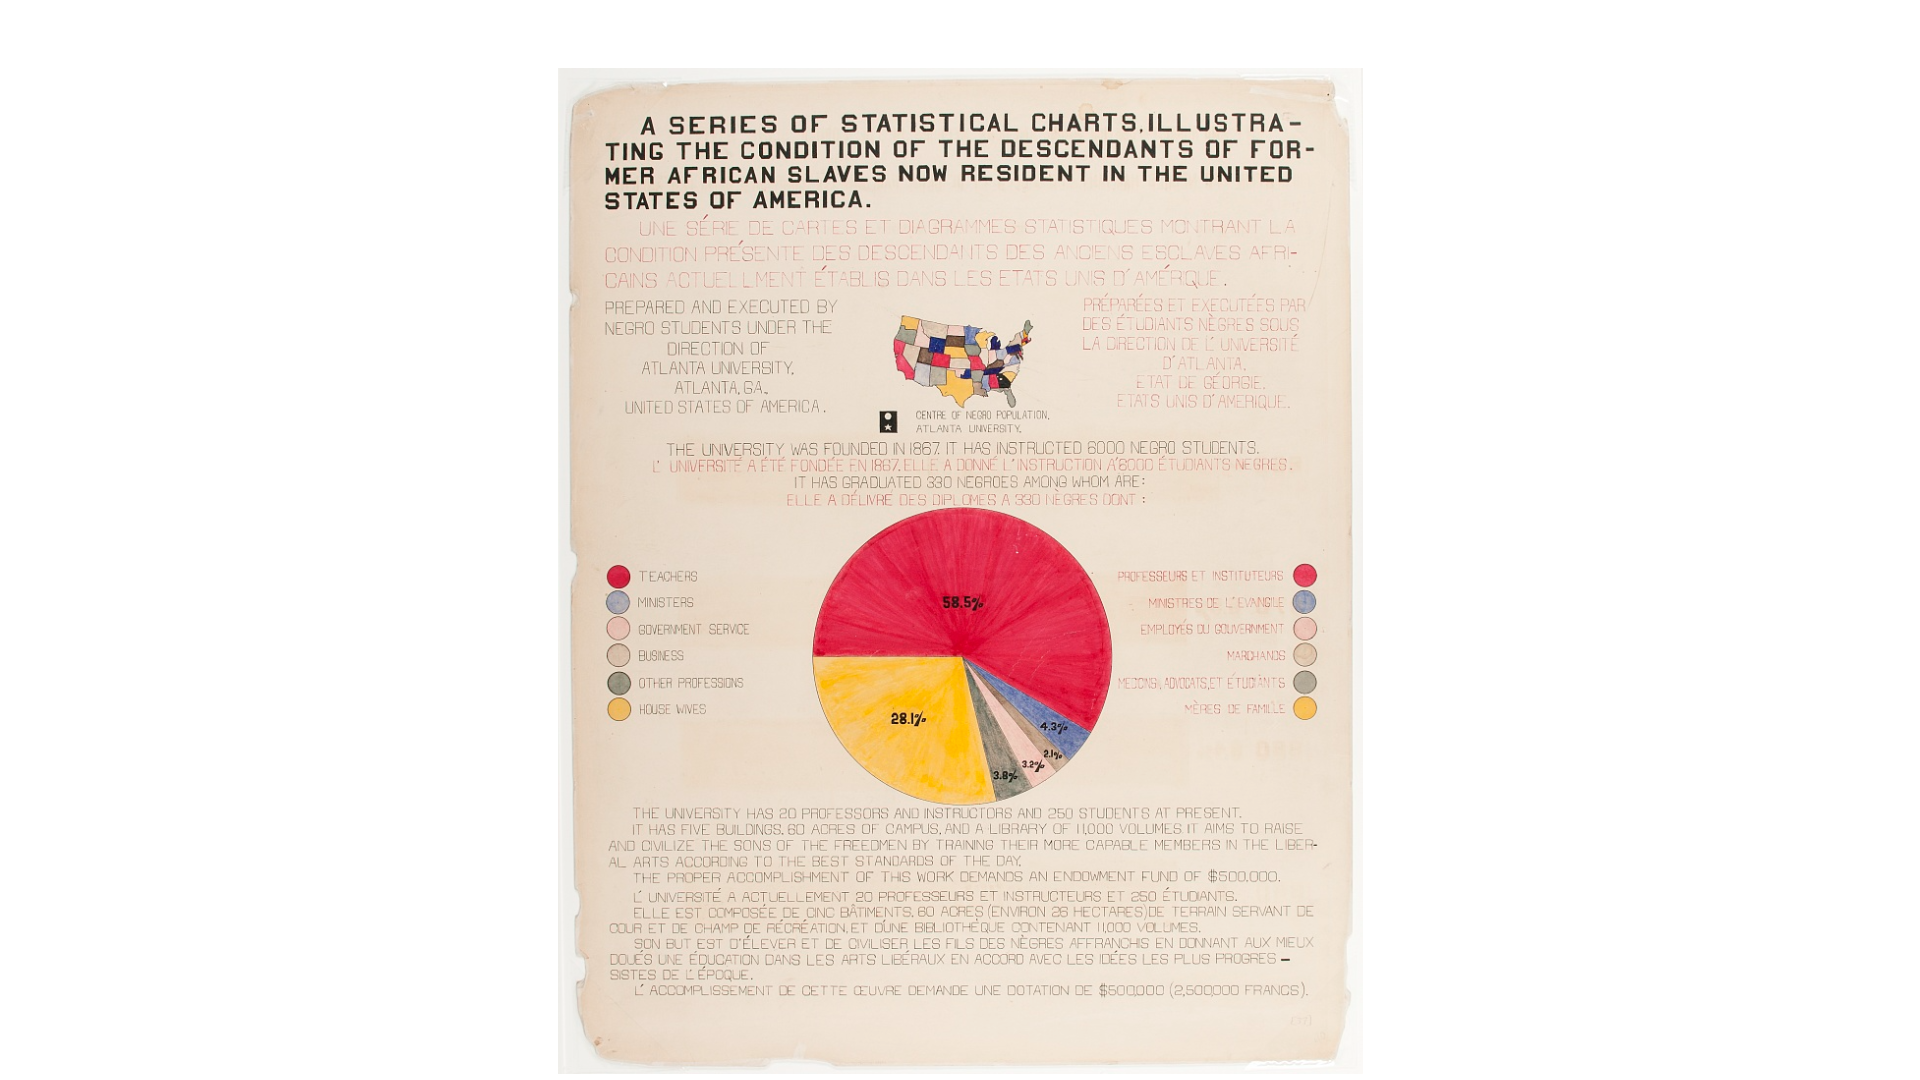 A SERIES OF STATISTICAL CHARTS, ILLUSTRA-
TING THE CONDITION OF THE DESCENDANTS OF FOR-
MER AFRICAN SLAVES NOW RESIDENT IN THE UNITED
STATES OF AMERICA.
UNE SÉRIE DE CARTES ET DIAGRAMMES STATISTIQUES MONTRANT LA
CONDITION PRÉSENTE DES DESCENDANTS DES ANCIENS ESCLAVES AFRI-
CAINS ACTUELLMENT ÉTABLIS DANS LES ETATS UNIS D'AMÉRIQUE.
PREPARED AND EXECUTED BY
NEGRO STUDENTS UNDER THE
DIRECTION OF
ATLANTA UNIVERSITY.
ATLANTA, GA.,
UNITED STATES OF AMERICA.
PRÉPARÉES ET EXECUTÉES PAR
DES ÉTUDIANTS NÈGRES SOUS
LA DIRECTION DE L'UNIVERSITÉ
D'ATLANTA.
ETAT DE GÉORGIE.
ETATS UNIS D'AMERIQUE.
CENTRE OF NEGRO POPULATION.
ATLANTA UNIVERSITY.
THE UNIVERSITY WAS FOUNDED IN 1867. IT HAS INSTRUCTED 6000 NEGRO STUDENTS.
L'UNIVERSITÉ A ÉTÉ FONDÉE EN 1867. ELLE A DONNÉ L'INSTRUCTION A'6000 ÉTUDIANTS NEGRES.
IT HAS GRADUATED 330 NEGROES AMONG WHOM ARE:
ELLE A DÉLIVRÉ DES DIPLOMES A 330 NÈGRES DONT :
TEACHERS
MINISTERS
GOVERNMENT SERVICE
BUSINESS
OTHER PROFESSIONS
HOUSE WIVES
58.5%
28.1%
4.3%
2.1%
3.2%
3.8%
PROFESSEURS ET INSTITUTEURS
MINISTRES DE L'EVANGILE
EMPLOYÉS DU GOUVERNMENT
MARCHANDS
MEDCINS, ADVOCATS, ET ÉTUDIANTS
MÈRES DE FAMILLE
THE UNIVERSITY HAS 20 PROFESSORS AND INSTRUCTORS AND 250 STUDENTS AT PRESENT.
IT HAS FIVE BUILDINGS, 60 ACRES OF CAMPUS, AND A LIBRARY OF 11,000 VOLUMES. IT AIMS TO RAISE
AND CIVILIZE THE SONS OF THE FREEDMEN BY TRAINING THEIR MORE CAPABLE MEMBERS IN THE LIBER-
AL ARTS ACCORDING TO THE BEST STANDARDS OF THE DAY.
THE PROPER ACCOMPLISHMENT OF THIS WORK DEMANDS AN ENDOWMENT FUND OF $500,000.
L'UNIVERSITÉ A ACTUELLEMENT 20 PROFESSEURS ET INSTRUCTEURS ET 250 ÉTUDIANTS.
ELLE EST COMPOSÉE DE CINC BÂTIMENTS, 60 ACRES (ENVIRON 26 HECTARES) DE TERRAIN SERVANT DE
COUR ET DE CHAMP DE RÉCRÉATION, ET D'UNE BIBLIOTHÉQUE CONTENANT 11,000 VOLUMES.
SON BUT EST D'ÉLEVER ET DE CIVILISER LES FILS DES NÈGRES AFFRANCHIS EN DONNANT AUX MIEUX
DOUÉS UNE ÉDUCATION DANS LES ARTS LIBÉRAUX EN ACCORD AVEC LES IDÉES LES PLUS PROGRES-
SISTES DE L'ÉPOQUE.
L'ACCOMPLISSEMENT DE CETTE ŒUVRE DEMANDE UNE DOTATION DE $500,000 (2,500,000 FRANCS).